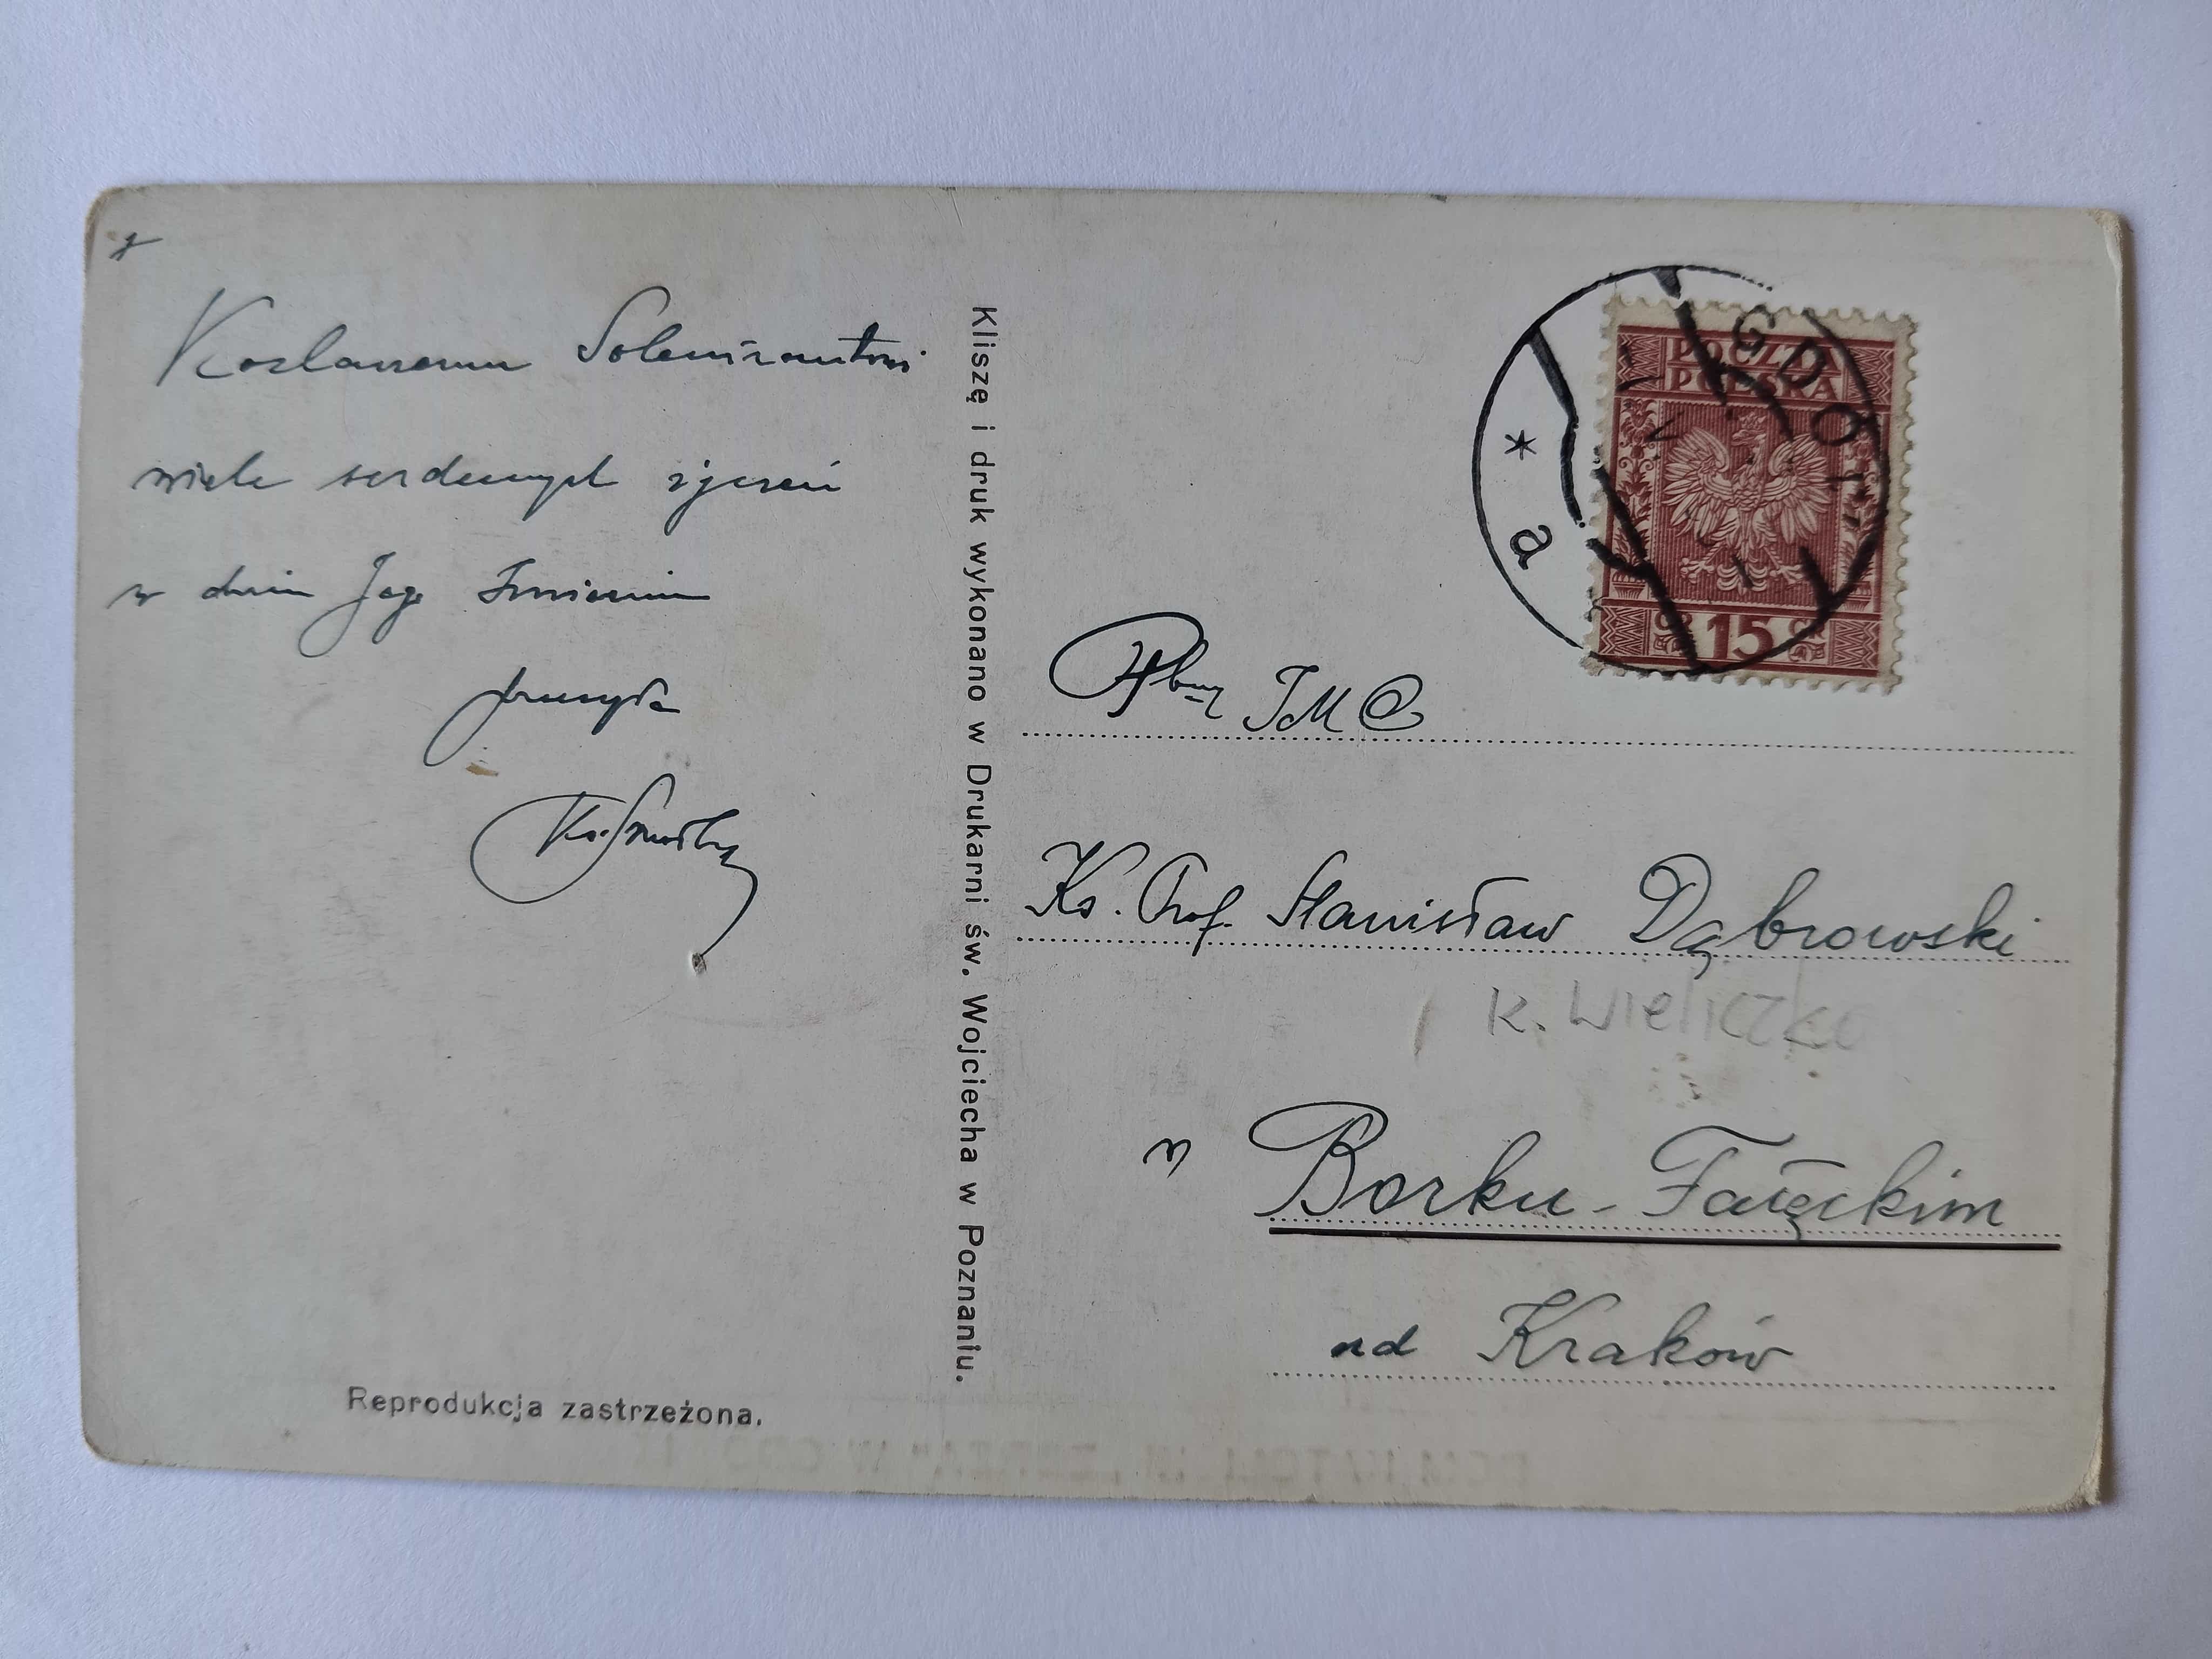 Kochanemu Solenizantowi
wiele serdecznych życzeń
w dniu Jego Imienin
przesyła
Ks.
Reprodukcja zastrzeżona.
Kliszę i druk wykonano w Drukarni św. Wojciecha w Poznaniu.
POCZTA
POLSKA
GR 15 GR
GDÓ
* a
JM
Ks. Prof. Stanisław Dąbrowski
K. Wieliczka
w Borku-Fałęckim
ad Kraków